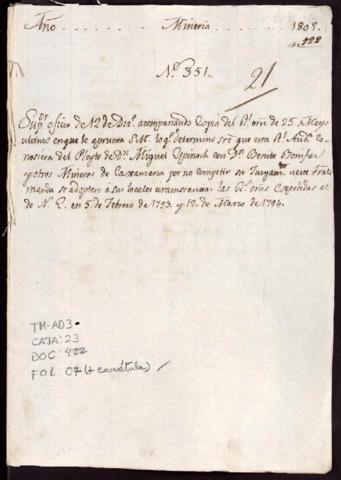 Año Mineria 1805.
nº 422
Nº 351.
21
Supor oficio de 12 de Dic.e acompañando Copia del Rl. orn de 25. Mayo
ultimo en que le aprueva S.M. lo q.e determinó sre que esta Rl. Aud.a co-
nosiera del Pleyto de Dn. Miguel Espinach con Dn. Benito Bonifaz
y otros Mineros de Caxamarca por no competir su
manda se adapten á sus locales circunstancias las Rl.s orns expedidas al
de N. E. en 5. de Febrero de 1793. y 12, de Marzo de 1794.
TM-AD3.
CAJA: 23
DOC: 422
FOL: 07 (+ carátula)